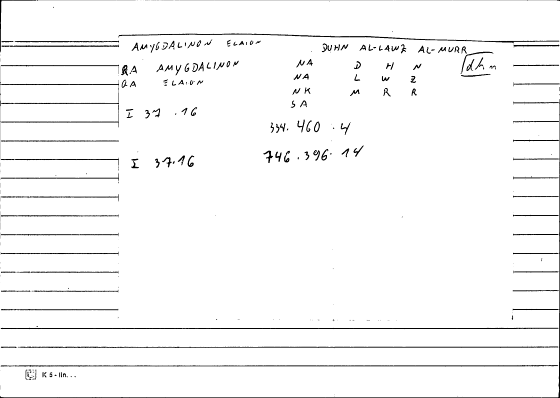 AMYGDALINON ELAION DUHN AL-LAWZ AL-MURR
QA AMYGDALINON NA D H N dhn
QA ELAION NA L W Z
NK M R R
SA
I 37.16
334.460.4
I 37.16 746.396.14
K 5 - lin...